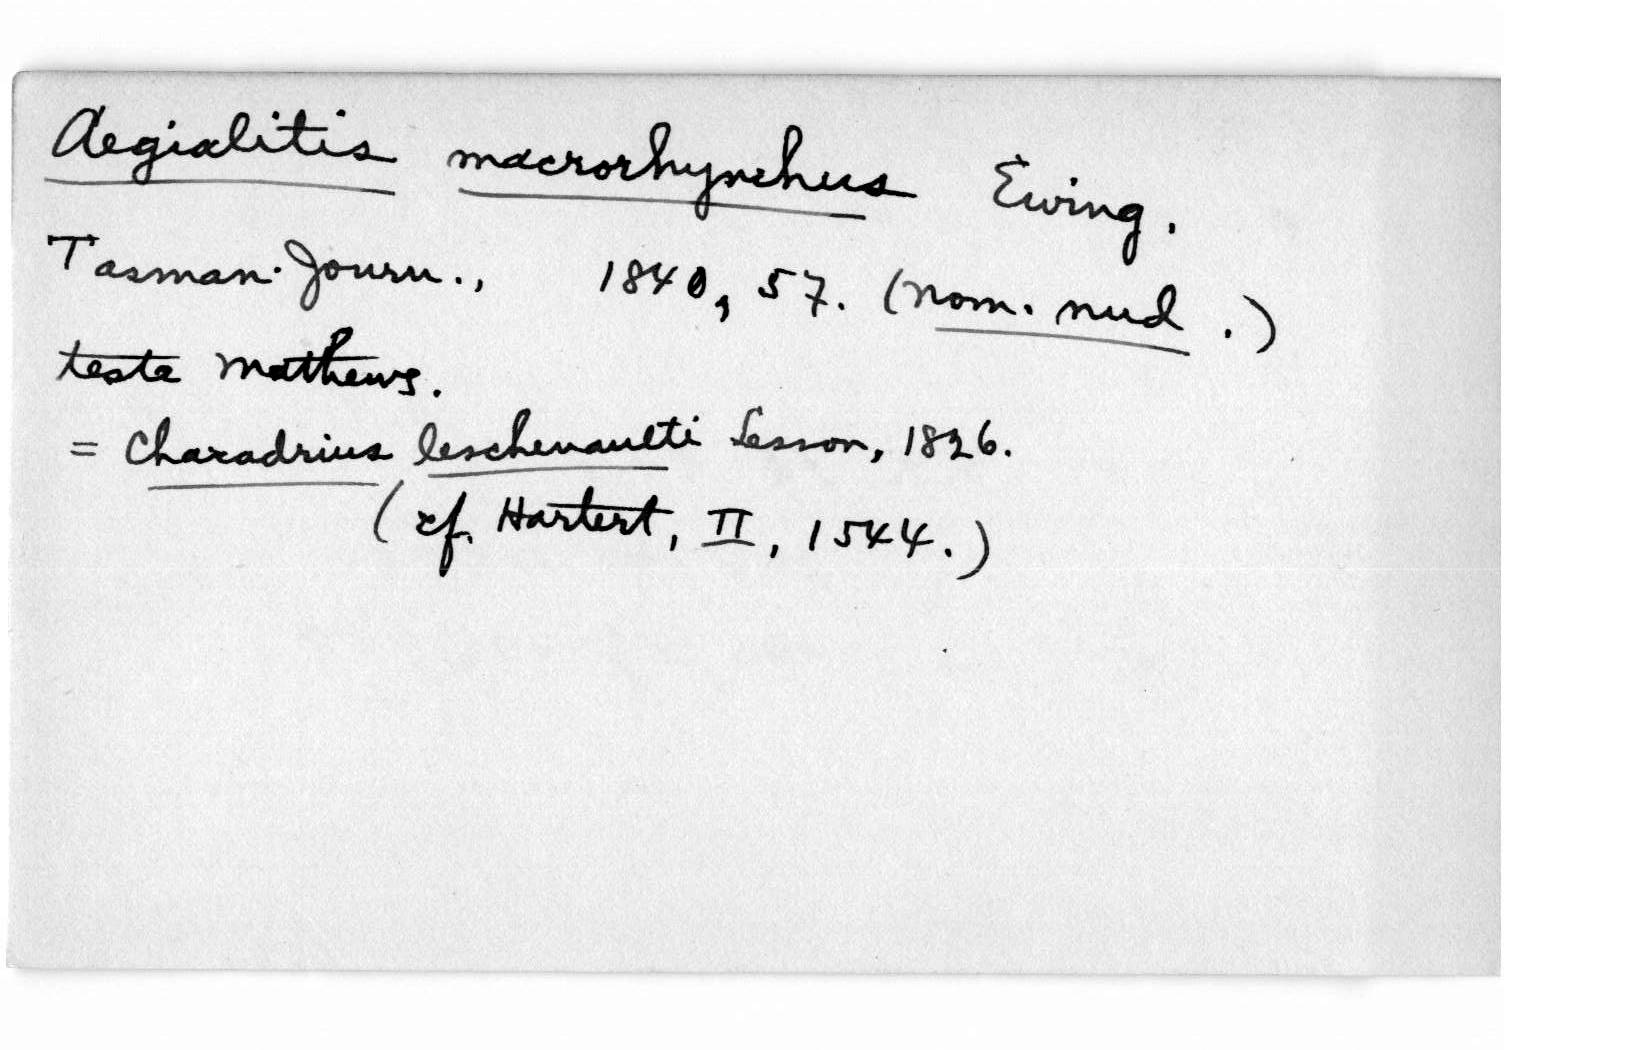 Aegialitis macrorhynchus Ewing.
Tasman. Journ., 1840, 57. (nom. nud.)
teste Mathews.
= Charadrius leschenaulti Lesson, 1826.
(cf. Hartert, II, 1544.)